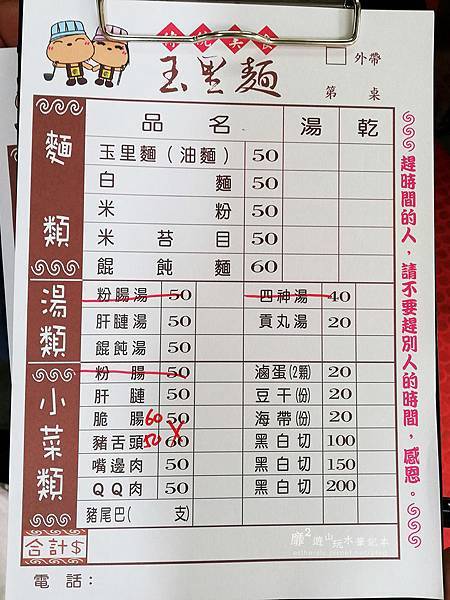 玉里麵
外帶
第 桌
品名 湯 乾
麵類
玉里麵(油麵) 50
白麵 50
米粉 50
米苔目 50
餛飩麵 60
湯類
粉腸湯 50 四神湯 40
肝腱湯 50 貢丸湯 20
餛飩湯 50
小菜類
粉腸 50 滷蛋(2顆) 20
肝腱 50 豆干(份) 20
脆腸 60 50 海帶(份) 20
豬舌頭 50 60 黑白切 100
嘴邊肉 50 黑白切 150
QQ肉 50 黑白切 200
豬尾巴( 支)
合計$
電話:
趕時間的人,請不要趕別人的時間,感恩。
靡² 遊山玩水筆記本